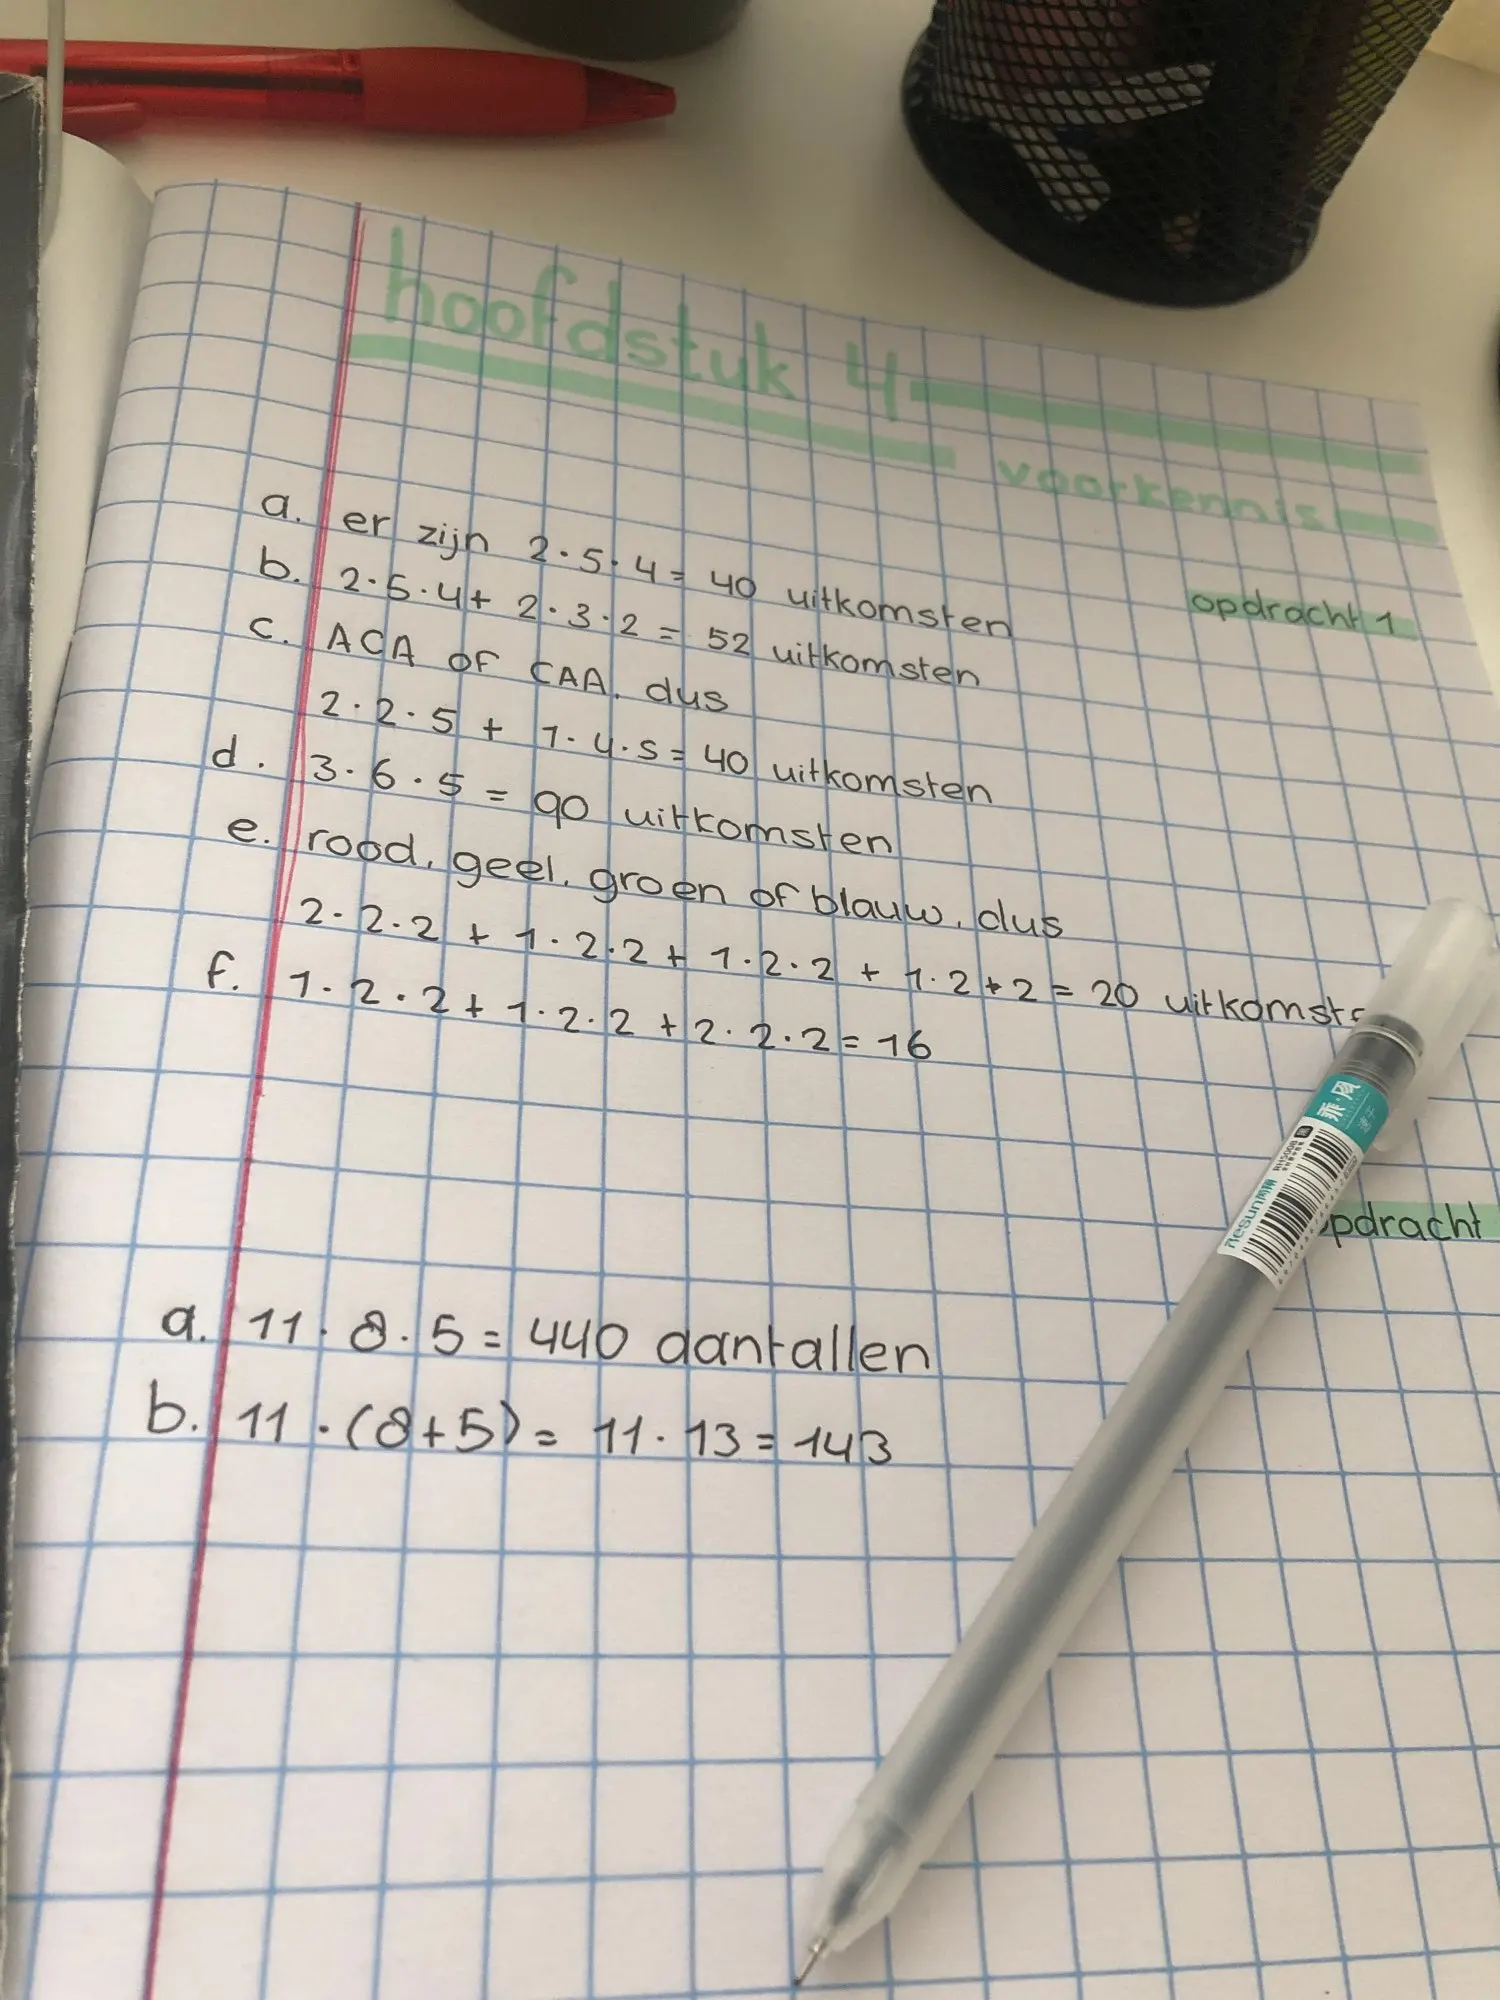 hoofdstuk 4
voorkennis
opdracht 1
a. er zijn 2·5·4 = 40 uitkomsten
b. 2·5·4 + 2·3·2 = 52 uitkomsten
c. ACA OF CAA, dus
2·2·5 + 1·4·5 = 40 uitkomsten
d. 3·6·5 = 90 uitkomsten
e. rood, geel, groen of blauw, dus
2·2·2 + 1·2·2 + 1·2·2 + 1·2·2 = 20 uitkomste
f. 1·2·2 + 1·2·2 + 2·2·2 = 16
pdracht
a. 11·8·5 = 440 aantallen
b. 11·(8+5) = 11·13 = 143
乘·风
nesun